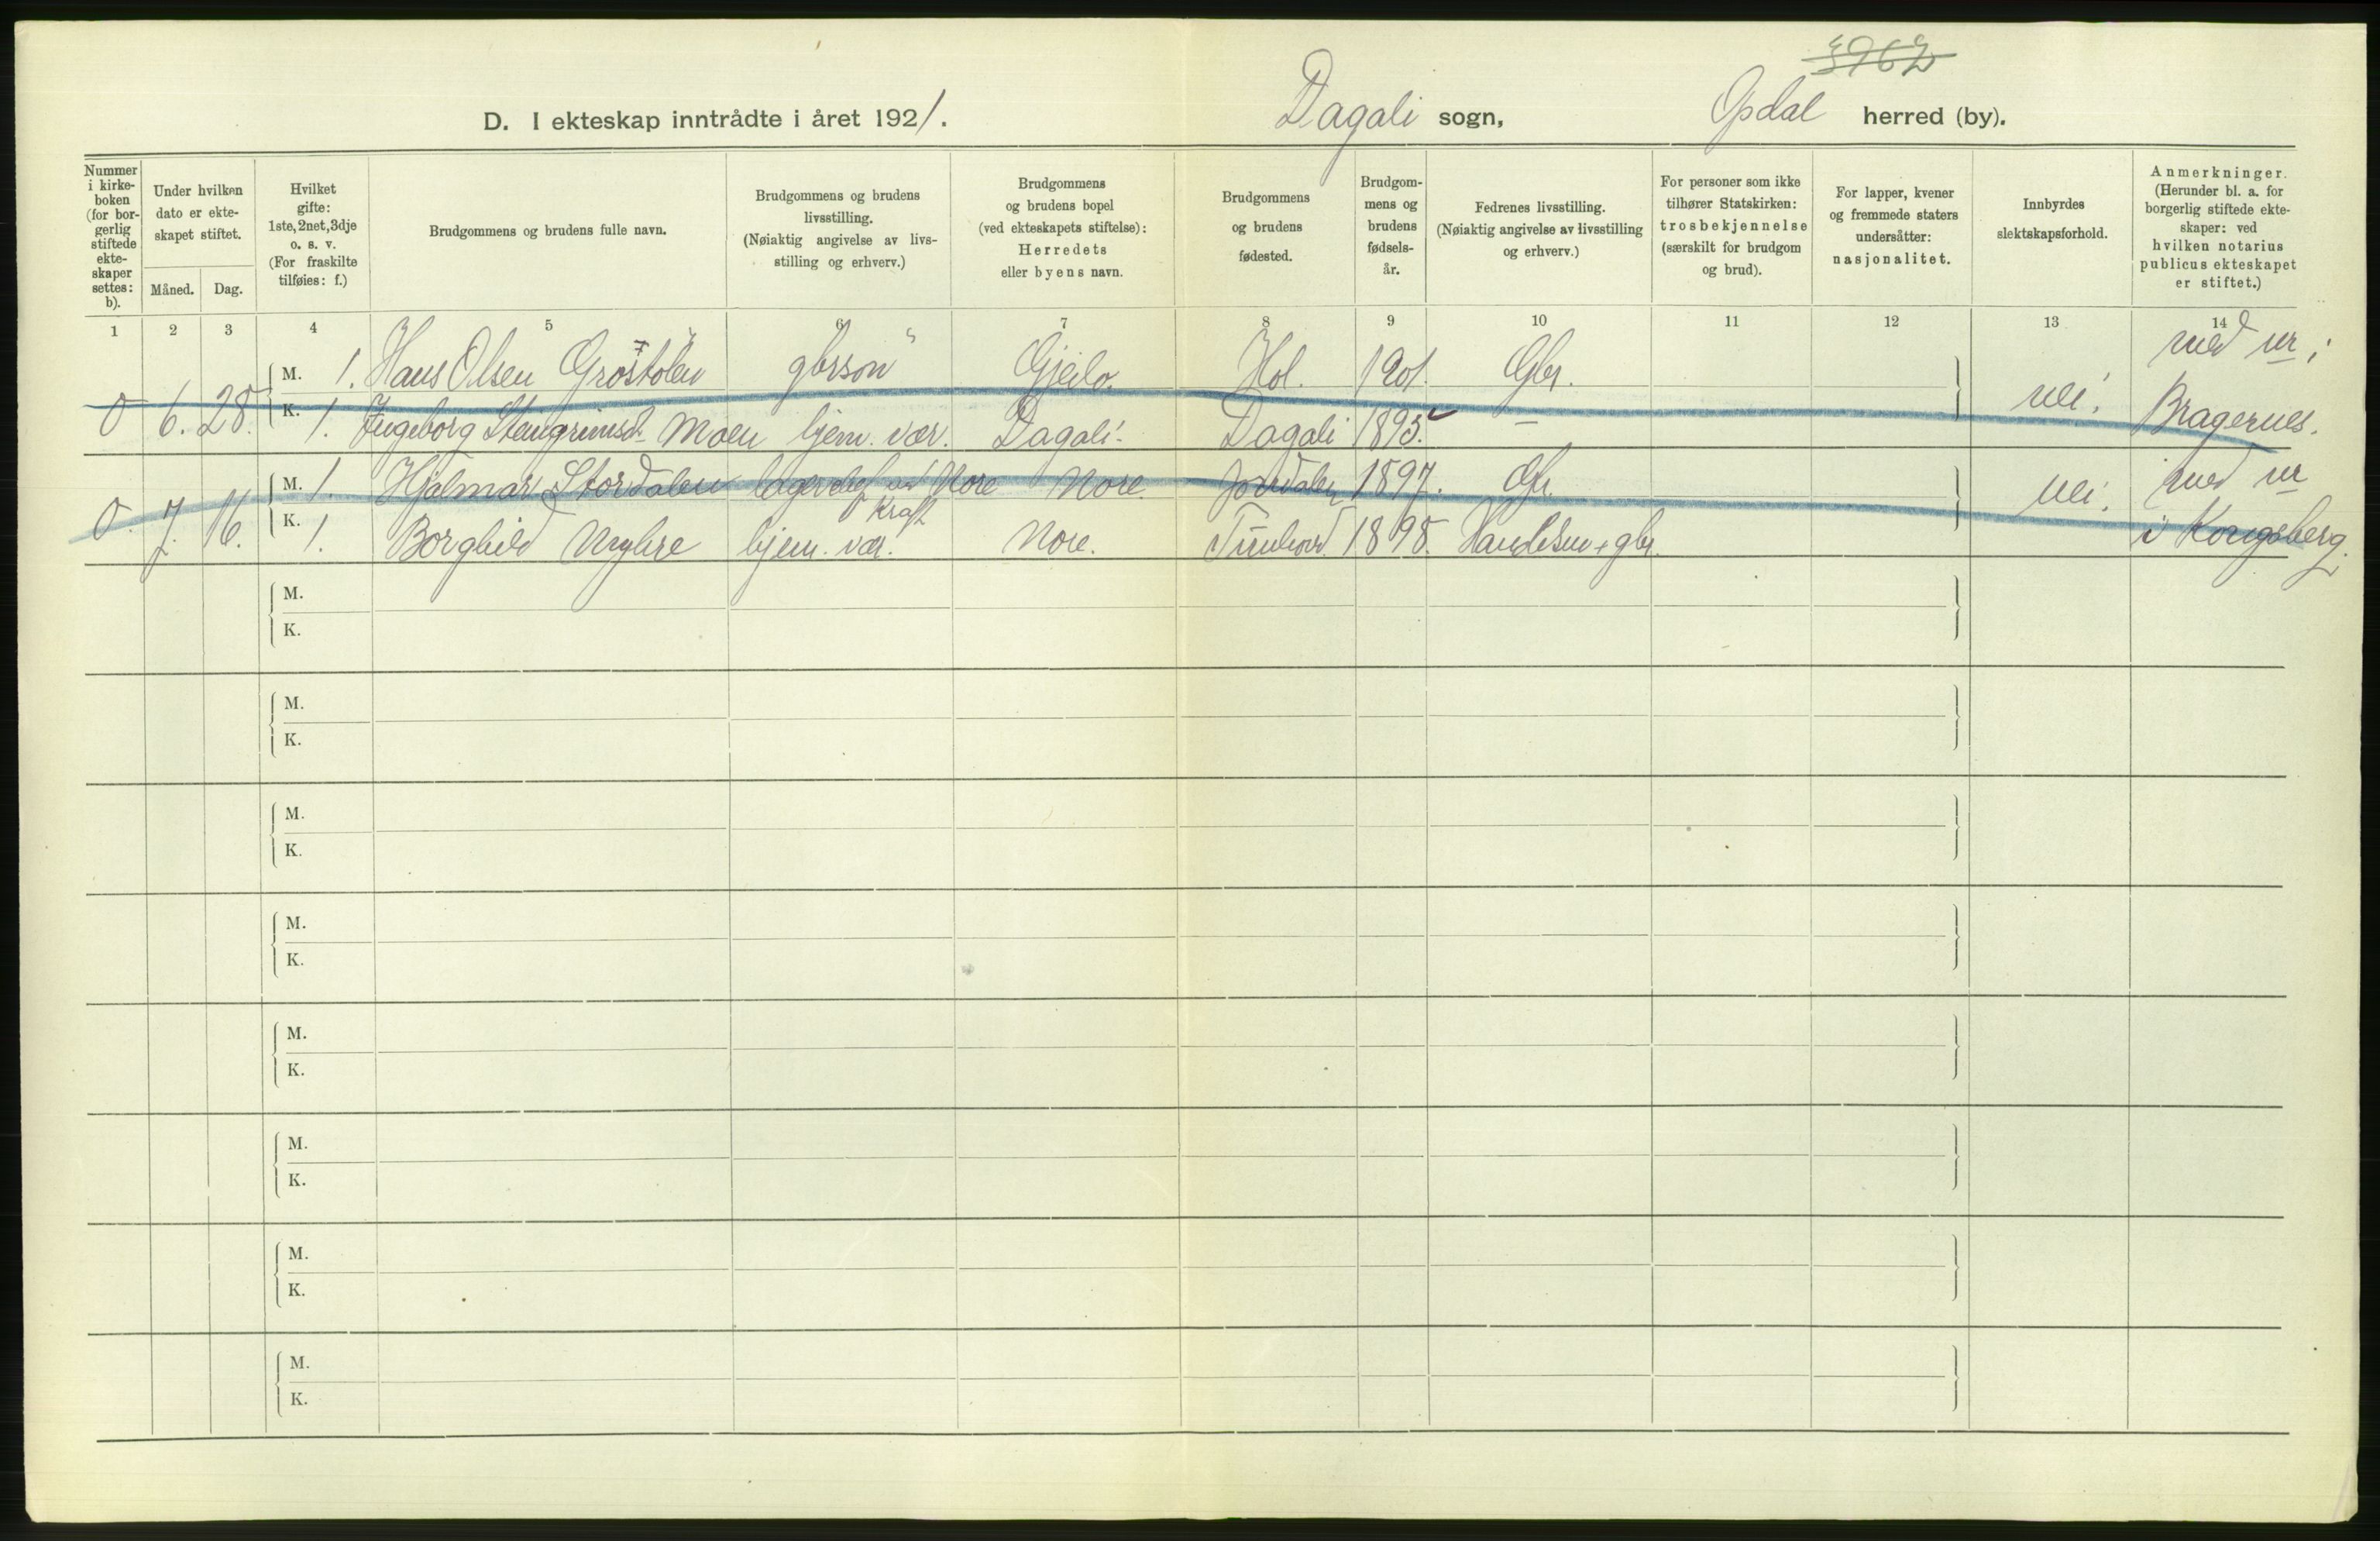 3962
D. I ekteskap inntrådte i året 1921. Dagali sogn, Opdal herred (by).
Nummer i kirke- boken (for bor- gerlig stiftede ekte- skaper settes: b).
Under hvilken dato er ekte- skapet stiftet.
Måned. Dag.
Hvilket gifte: 1ste, 2net, 3dje o. s. v. (For fraskilte tilføies: f.)
Brudgommens og brudens fulle navn.
Brudgommens og brudens livsstilling. (Nøiaktig angivelse av livs- stilling og erhverv.)
Brudgommens og brudens bopel (ved ekteskapets stiftelse): Herredets eller byens navn.
Brudgommens og brudens fødested.
Brudgom- mens og brudens fødsels- år.
Fedrenes livsstilling. (Nøiaktig angivelse av livsstilling og erhverv.)
For personer som ikke tilhører Statskirken: trosbekjennelse (særskilt for brudgom og brud).
For lapper, kvener og fremmede staters undersåtter: nasjonalitet.
Innbyrdes slektskapsforhold.
Anmerkninger. (Herunder bl. a. for borgerlig stiftede ekte- skaper: ved hvilken notarius publicus ekteskapet er stiftet.)
1 2 3 4 5 6 7 8 9 10 11 12 13 14
M. 1. Hans Olsen gbrson Gjeilo. Hol. 1901. Gbr. med vr i
0 6. 28. K. 1. Ingeborg Steingrimsd. Moen hjem. vær. Dagali. Dagali 1895. — nei. Bragernes.
M. 1. Hjalmar Stordalen Nore Nore. 1897. nei. med vr
Kraft
0. 7. 16. K. 1. Borghild Myhre hjem. vær. Nore. Tunhovd. 1898. gbr. i Kongsberg.
M.
K.
M.
K.
M.
K.
M.
K.
M.
K.
M.
K.
M.
K.
M.
K.